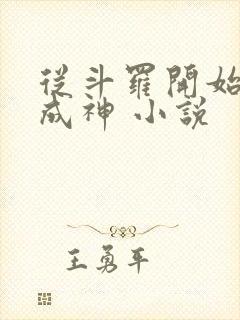 從斗羅開始
成神 小說
王勇平